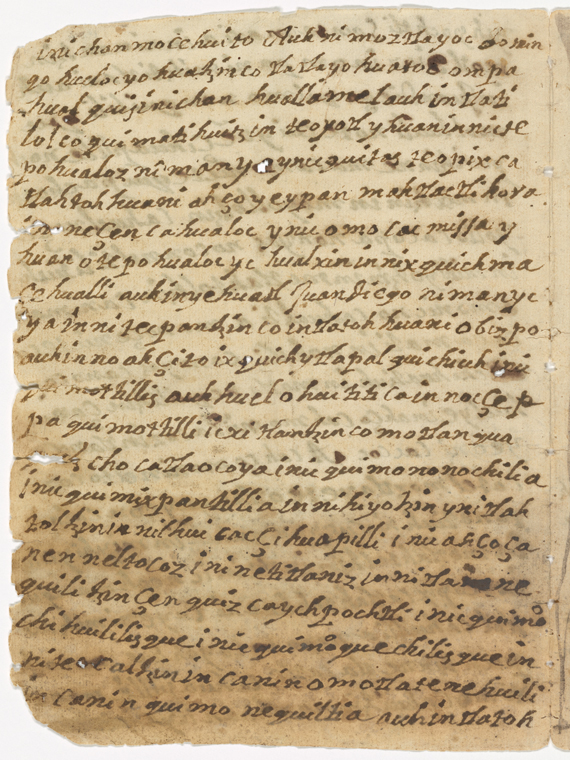 inichan moçehuito Auh ni moztlayoc Domin
go hueloc yohuatzinco tlatlayohuatoc ompa
hual quiz inichan huallamelauh in tlati
lolco quimatihuitz in teoyotl yhuan innicte
pohualoz niman yc ynicquitaz teopixca
tlahtohuani ahço yeypan mahtlactli hora
in onecencahualoc ynic omocac missa y
huan otepohualoc yc hualxin inixquich ma
cehualli auh in yehuatl Juan diego niman yc
ya in nitecpantzinco in tlatohuani obizpo
auh in noahçito ixquich ytlapal quichiuh inic
quimottilliz auh huel ohuititica in nocçep
pa quimottilli icxitlantzinco motlanqua
choca tlaocoya inic quimononochilia
inic quimixpantillia in nihiyotzin ynitlah
toltzin in nilhuicac Çihuapilli inic ahço ça
nen neltocoz in inetitlaniz in nitla ne
quilitzin Çenquizca ychpochtli inic quimo
chihuililizque inic quimoquechilizque in
niteocaltzin in canin omotlatenehuili
in canin quimonequiltia auh in tlatoh